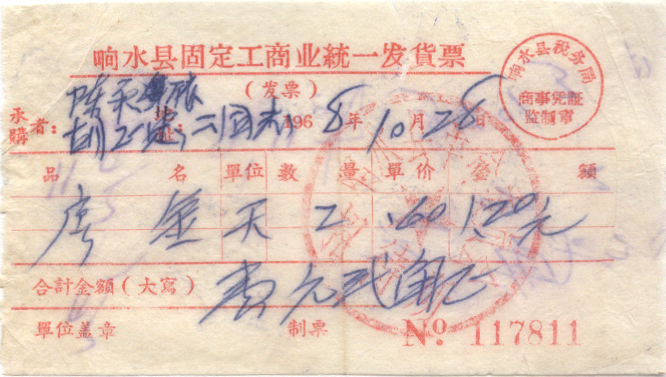 响水县固定工商业統一发貨票
(发票)
响水县税务局
商事凭証
监制章
承購者:
1968年10月28日
品名 單位 数量 單价 金額
房金 天 2 .60 1.20元
合計金額(大寫) 壹元贰角正
單位盖章 制票 No 117811